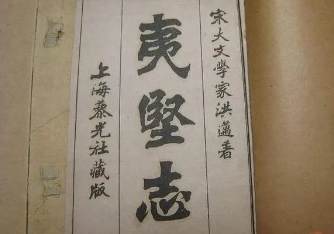 宋大文學家洪邁著
夷堅志
上海藜光社藏版